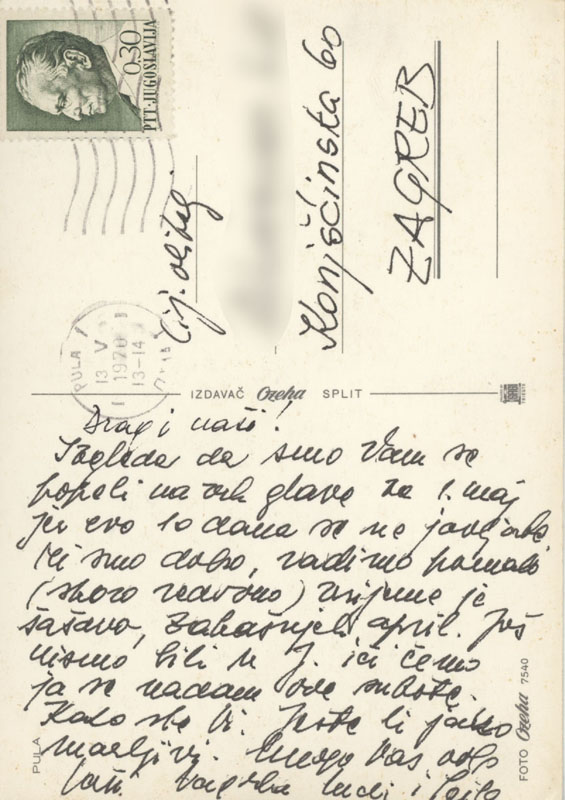 0.30
PTT-JUGOSLAVIJA
Cij. obitelj
Konjšćinska 60
ZAGREB
PULA 1
13 V
1970
13-14
IZDAVAČ Ozeha SPLIT
Dragi naši!
Izgleda da smo Vam se
popeli na vrh glave za 1. maj
jer evo 10 dana se ne javljate
Mi smo dobro, radimo pomalo
(skoro redovno) Vrijeme je
šašavo, zakašnjeli april. Još
nismo bili u J. ići ćemo
ja se nadam ove subote.
Kako ste Vi. Jeste li jako
marljivi. Mnogo Vas vole
Vaši
PULA
FOTO Ozeha 7540